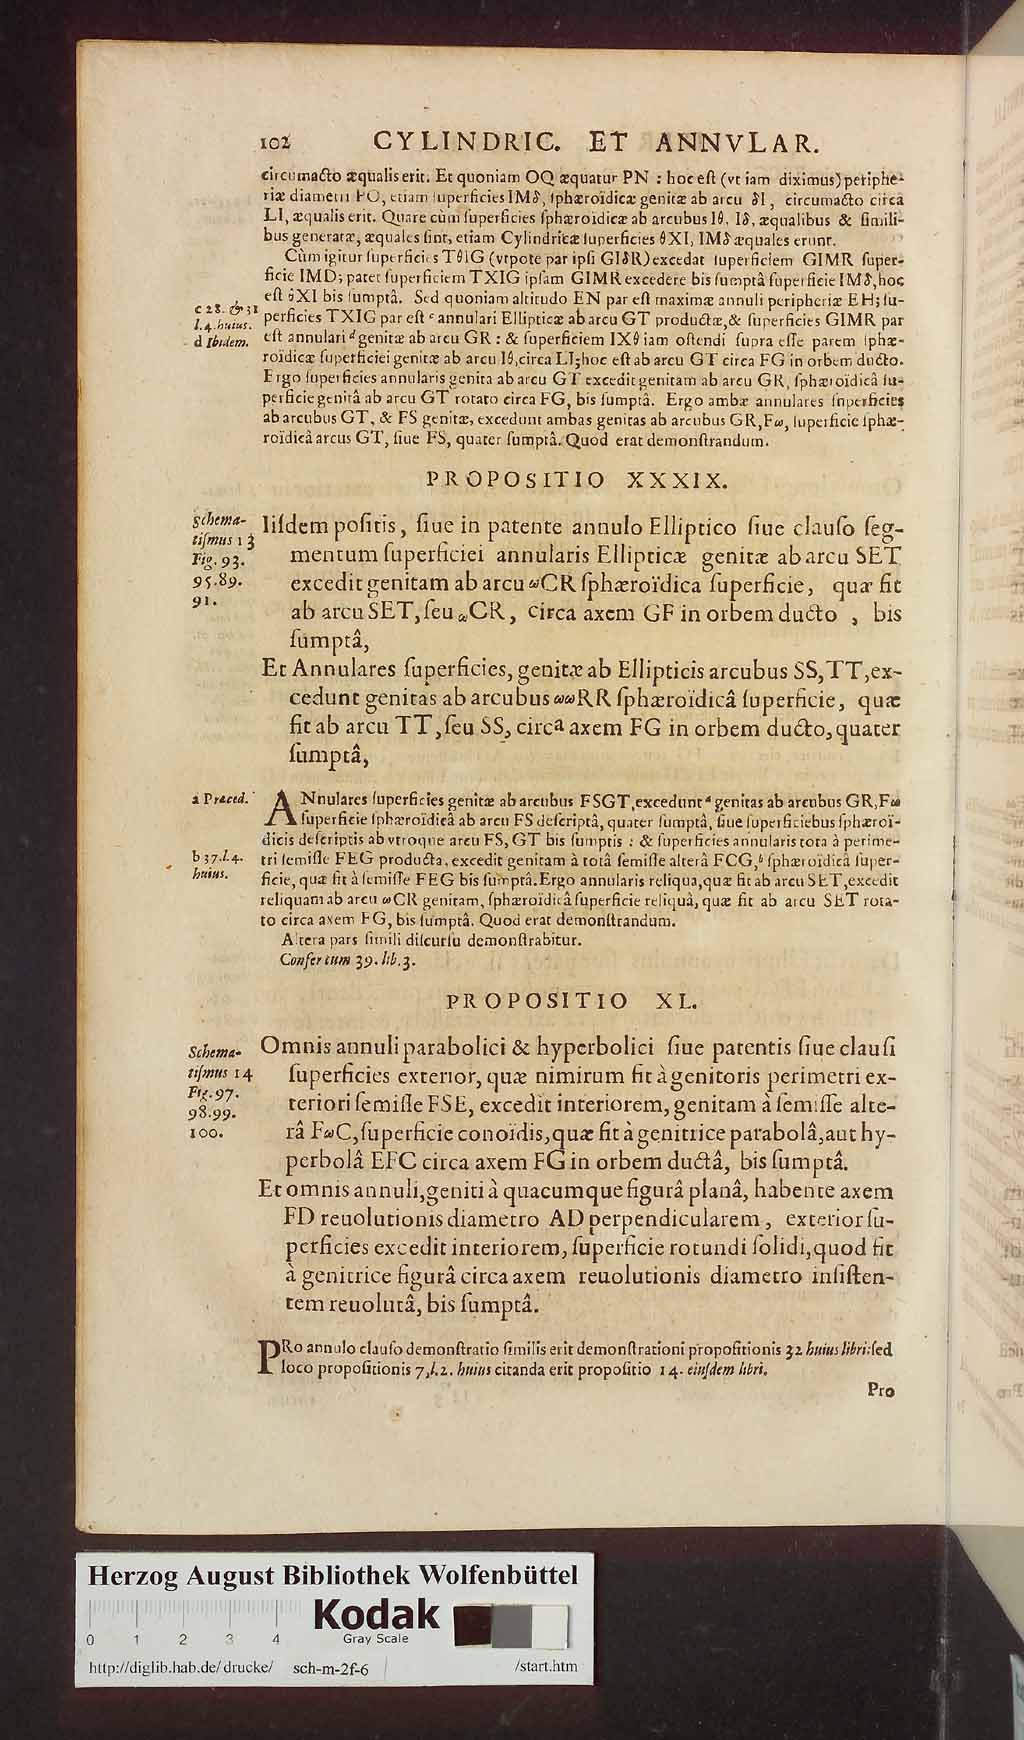 102 CYLINDRIC. ET ANNVLAR.
circumacto æqualis erit. Et quoniam OQ æquatur PN : hoc eſt (vt iam diximus) periphe-
riæ diametri FO, etiam ſuperficies IMδ, ſphæroïdicæ genitæ ab arcu δI, circumacto circa
LI, æqualis erit. Quare cùm ſuperficies ſphæroïdicæ ab arcubus Iθ, Iδ, æqualibus & ſimili-
bus generatæ, æquales ſint, etiam Cylindricæ ſuperficies θXI, IMδ æquales erunt.
Cùm igitur ſuperficies TθIG (vtpote par ipſi GIδR) excedat ſuperficiem GIMR ſuper-
ficie IMD; patet ſuperficiem TXIG ipſam GIMR excedere bis ſumptâ ſuperficie IMδ, hoc
eſt θXI bis ſumptâ. Sed quoniam altitudo EN par eſt maximæ annuli peripheriæ EH; ſu-
c 28. & 31
l. 4. huius.
d Ibidem.
perficies TXIG par eſt c annulari Ellipticæ ab arcu GT productæ, & ſuperficies GIMR par
eſt annulari d genitæ ab arcu GR : & ſuperficiem IXθ iam oſtendi ſupra eſſe parem ſphæ-
roïdicæ ſuperficiei genitæ ab arcu Iθ, circa LI; hoc eſt ab arcu GT circa FG in orbem ducto.
Ergo ſuperficies annularis genita ab arcu GT excedit genitam ab arcu GR, ſphæroïdicâ ſu-
perficie genitâ ab arcu GT rotato circa FG, bis ſumptâ. Ergo ambæ annulares ſuperficies
ab arcubus GT, & FS genitæ, excedunt ambas genitas ab arcubus GR, Fω, ſuperficie ſphæ-
roïdicâ arcus GT, ſiue FS, quater ſumptâ. Quod erat demonſtrandum.
PROPOSITIO XXXIX.
Schema-
tiſmus 13
Fig. 93.
95. 89.
91.
Iiſdem poſitis, ſiue in patente annulo Elliptico ſiue clauſo ſeg-
mentum ſuperficiei annularis Ellipticæ genitæ ab arcu SET
excedit genitam ab arcu ωCR ſphæroïdica ſuperficie, quæ fit
ab arcu SET, ſeu ωCR, circa axem GF in orbem ducto , bis
ſumptâ,
Et Annulares ſuperficies, genitæ ab Ellipticis arcubus SS, TT, ex-
cedunt genitas ab arcubus ωωRR ſphæroïdicâ ſuperficie, quæ
fit ab arcu TT, ſeu SS, circa axem FG in orbem ducto, quater
ſumptâ,
a Præced.
ANnulares ſuperficies genitæ ab arcubus FSGT, excedunt a genitas ab arcubus GR, Fω
ſuperficie ſphæroïdicâ ab arcu FS deſcriptâ, quater ſumptâ, ſiue ſuperficiebus ſphæroï-
dicis deſcriptis ab vtroque arcu FS, GT bis ſumptis : & ſuperficies annularis tota à perime-
b 37. l. 4.
huius.
tri ſemiſſe FEG producta, excedit genitam à totâ ſemiſſe alterâ FCG, b ſphæroïdicâ ſuper-
ficie, quæ fit à ſemiſſe FEG bis ſumptâ. Ergo annularis reliqua, quæ fit ab arcu SET, excedit
reliquam ab arcu ωCR genitam, ſphæroïdicâ ſuperficie reliquâ, quæ fit ab arcu SET rota-
to circa axem FG, bis ſumptâ. Quod erat demonſtrandum.
Altera pars ſimili diſcurſu demonſtrabitur.
Confer cum 39. lib. 3.
PROPOSITIO XL.
Schema-
tiſmus 14
Fig. 97.
98. 99.
100.
Omnis annuli parabolici & hyperbolici ſiue patentis ſiue clauſi
ſuperficies exterior, quæ nimirum fit à genitoris perimetri ex-
teriori ſemiſſe FSE, excedit interiorem, genitam à ſemiſſe alte-
râ FωC, ſuperficie conoïdis, quæ fit à genitrice parabolâ, aut hy-
perbolâ EFC circa axem FG in orbem ductâ, bis ſumptâ.
Et omnis annuli, geniti à quacumque figurâ planâ, habente axem
FD reuolutionis diametro AD perpendicularem, exterior ſu-
perficies excedit interiorem, ſuperficie rotundi ſolidi, quod fit
à genitrice figurâ circa axem reuolutionis diametro inſiſten-
tem reuolutâ, bis ſumptâ.
PRo annulo clauſo demonſtratio ſimilis erit demonſtrationi propoſitionis 32 huius libri: ſed
loco propoſitionis 7, l. 2. huius citanda erit propoſitio 14. eiuſdem libri.
Pro
Herzog August Bibliothek Wolfenbüttel
Kodak
Gray Scale
0 1 2 3 4
http://diglib.hab.de/drucke/ sch-m-2f-6 /start.htm